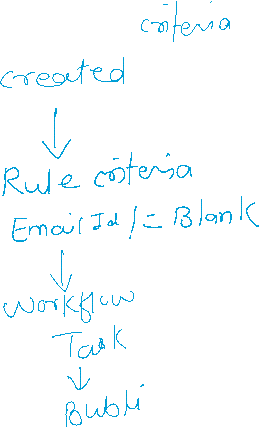 criteria
created
Rule criteria
Email Id != Blank
Workflow
Task
Bubli